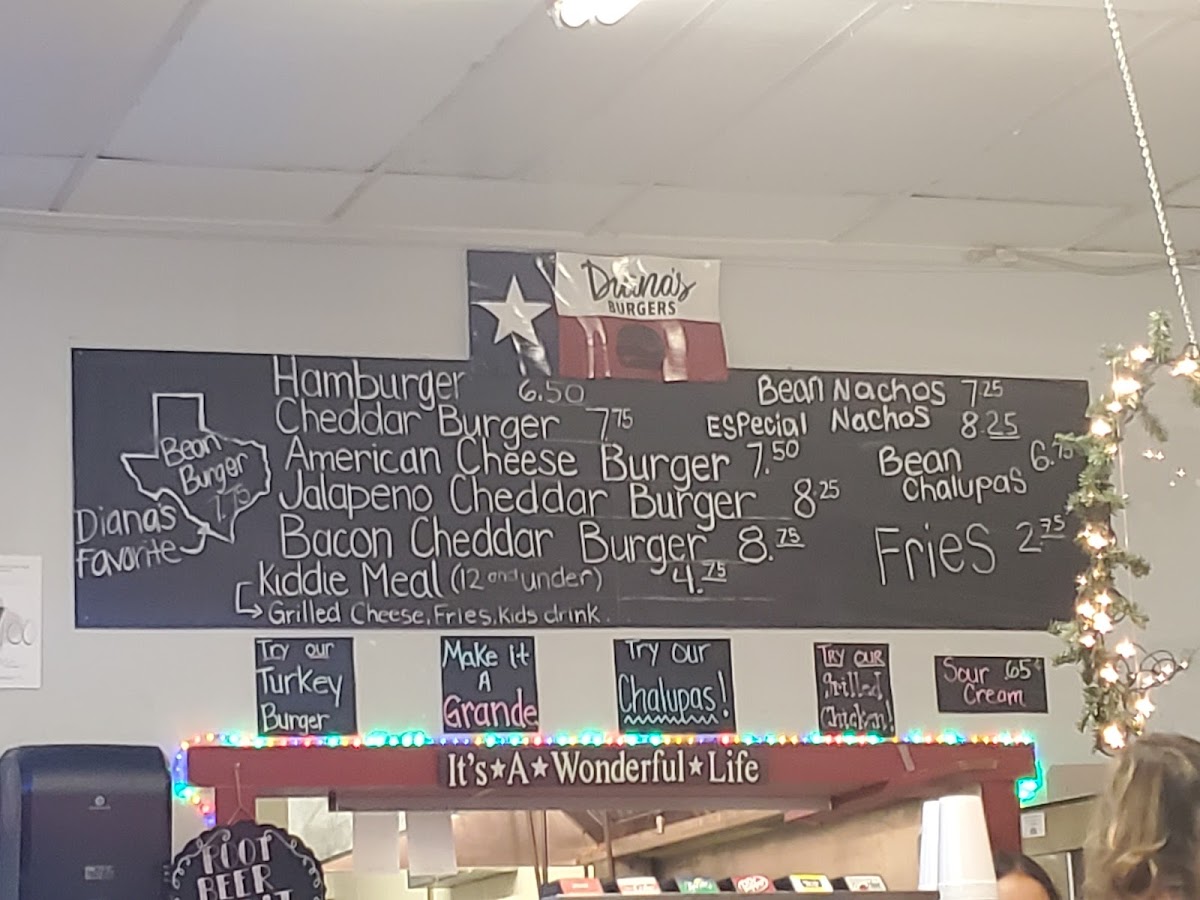 Diana's
BURGERS
Hamburger 6.50
Cheddar Burger 7 75
American Cheese Burger 7.50
Jalapeno Cheddar Burger 8 25
Bacon Cheddar Burger 8.75
Kiddie Meal (12 and under) 4.75
Grilled Cheese, Fries, Kids drink.
Bean
Burger
7.75
Diana's
favorite
Bean Nachos 7 25
ESPecial Nachos 8.25
Bean 6.75
Chalupas
Fries 2 75
Try our
Turkey
Burger
Make it
A
Grande
Try our
Chalupas!
TRY OUR
Grilled
Chicken!
Sour .65¢
Cream
It's★A★Wonderful★Life
ROOT
BEER